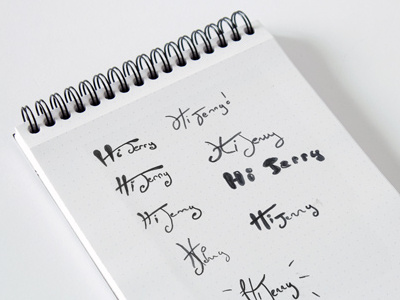 Hi Jerry!
Hi Jerry
Hi Jerry
Hi Jerry
Hi Jerry
Hi Jerry
Hi Jerry
Hi Jerry
Hi Jerry